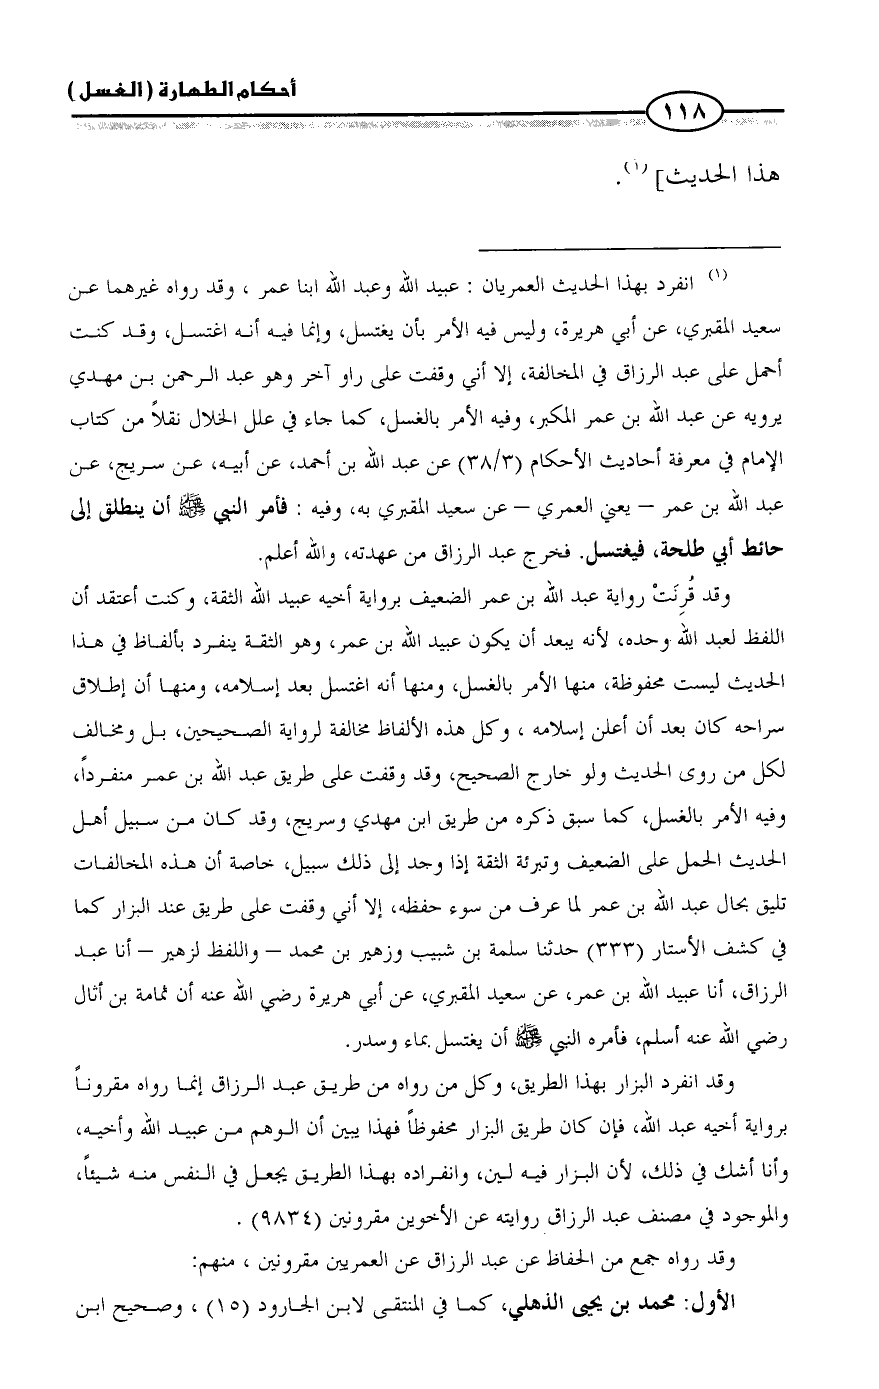 أحكام الطهارة (الغسل)
١١٨
هذا الحديث] (١).
(١) انفرد بهذا الحديث العمريان : عبيد الله وعبد الله ابنا عمر ، وقد رواه غيرهما عن
سعيد المقبري، عن أبي هريرة، وليس فيه الأمر بأن يغتسل، وإنما فيه أنه اغتسل، وقد كنت
أحمل على عبد الرزاق في المخالفة، إلا أني وقفت على راو آخر وهو عبد الرحمن بن مهدي
يرويه عن عبد الله بن عمر المكبر، وفيه الأمر بالغسل، كما جاء في علل الخلال نقلاً من كتاب
الإمام في معرفة أحاديث الأحكام (٣٨/٣) عن عبد الله بن أحمد، عن أبيه، عن سريج، عن
عبد الله بن عمر – يعني العمري – عن سعيد المقبري به، وفيه : فأمر النبي ﷺ أن ينطلق إلى
حائط أبي طلحة، فيغتسل. فخرج عبد الرزاق من عهدته، والله أعلم.
وقد قُرِنَتْ رواية عبد الله بن عمر الضعيف برواية أخيه عبيد الله الثقة، وكنت أعتقد أن
اللفظ لعبد الله وحده، لأنه يبعد أن يكون عبيد الله بن عمر، وهو الثقة ينفرد بألفاظ في هذا
الحديث ليست محفوظة، منها الأمر بالغسل، ومنها أنه اغتسل بعد إسلامه، ومنها أن إطلاق
سراحه كان بعد أن أعلن إسلامه ، وكل هذه الألفاظ مخالفة لرواية الصحيحين، بل ومخالف
لكل من روى الحديث ولو خارج الصحيح، وقد وقفت على طريق عبد الله بن عمر منفرداً،
وفيه الأمر بالغسل، كما سبق ذكره من طريق ابن مهدي وسريج، وقد كان من سبيل أهل
الحديث الحمل على الضعيف وتبرئة الثقة إذا وجد إلى ذلك سبيل، خاصة أن هذه المخالفات
تليق بحال عبد الله بن عمر لما عرف من سوء حفظه، إلا أني وقفت على طريق عند البزار كما
في كشف الأستار (٣٣٣) حدثنا سلمة بن شبيب وزهير بن محمد – واللفظ لزهير – أنا عبد
الرزاق، أنا عبيد الله بن عمر، عن سعيد المقبري، عن أبي هريرة رضي الله عنه أن ثمامة بن أثال
رضي الله عنه أسلم، فأمره النبي ﷺ أن يغتسل بماء وسدر.
وقد انفرد البزار بهذا الطريق، وكل من رواه من طريق عبد الرزاق إنما رواه مقروناً
برواية أخيه عبد الله، فإن كان طريق البزار محفوظاً فهذا يبين أن الوهم من عبيد الله وأخيه،
وأنا أشك في ذلك، لأن البزار فيه لين، وانفراده بهذا الطريق يجعل في النفس منه شيئاً،
والموجود في مصنف عبد الرزاق روايته عن الأخوين مقرونين (٩٨٣٤) .
وقد رواه جمع من الحفاظ عن عبد الرزاق عن العمريين مقرونين ، منهم:
الأول: محمد بن يحيى الذهلي، كما في المنتقى لابن الجارود (١٥) ، وصحيح ابن